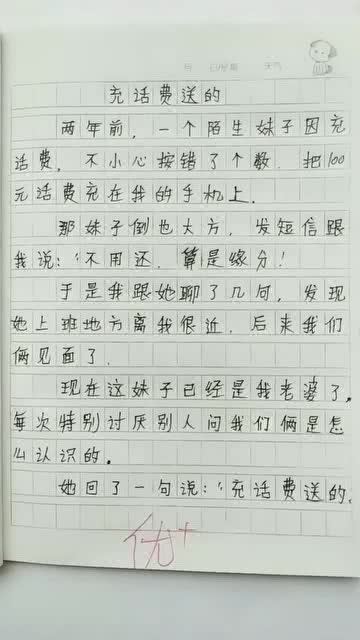 充话费送的
两年前，一个陌生妹子因充
话费，不小心按错了个数．把100
元话费充在我的手机上．
那妹子倒也大方，发短信跟
我说："不用还．算是缘分！
于是我跟她聊了几句，发现
她上班地方离我很近．后来我们
俩见面了．
现在这妹子已经是我老婆了．
每次特别讨厌别人问我们俩是怎
么认识的．
她回了一句说："充话费送的．
优+